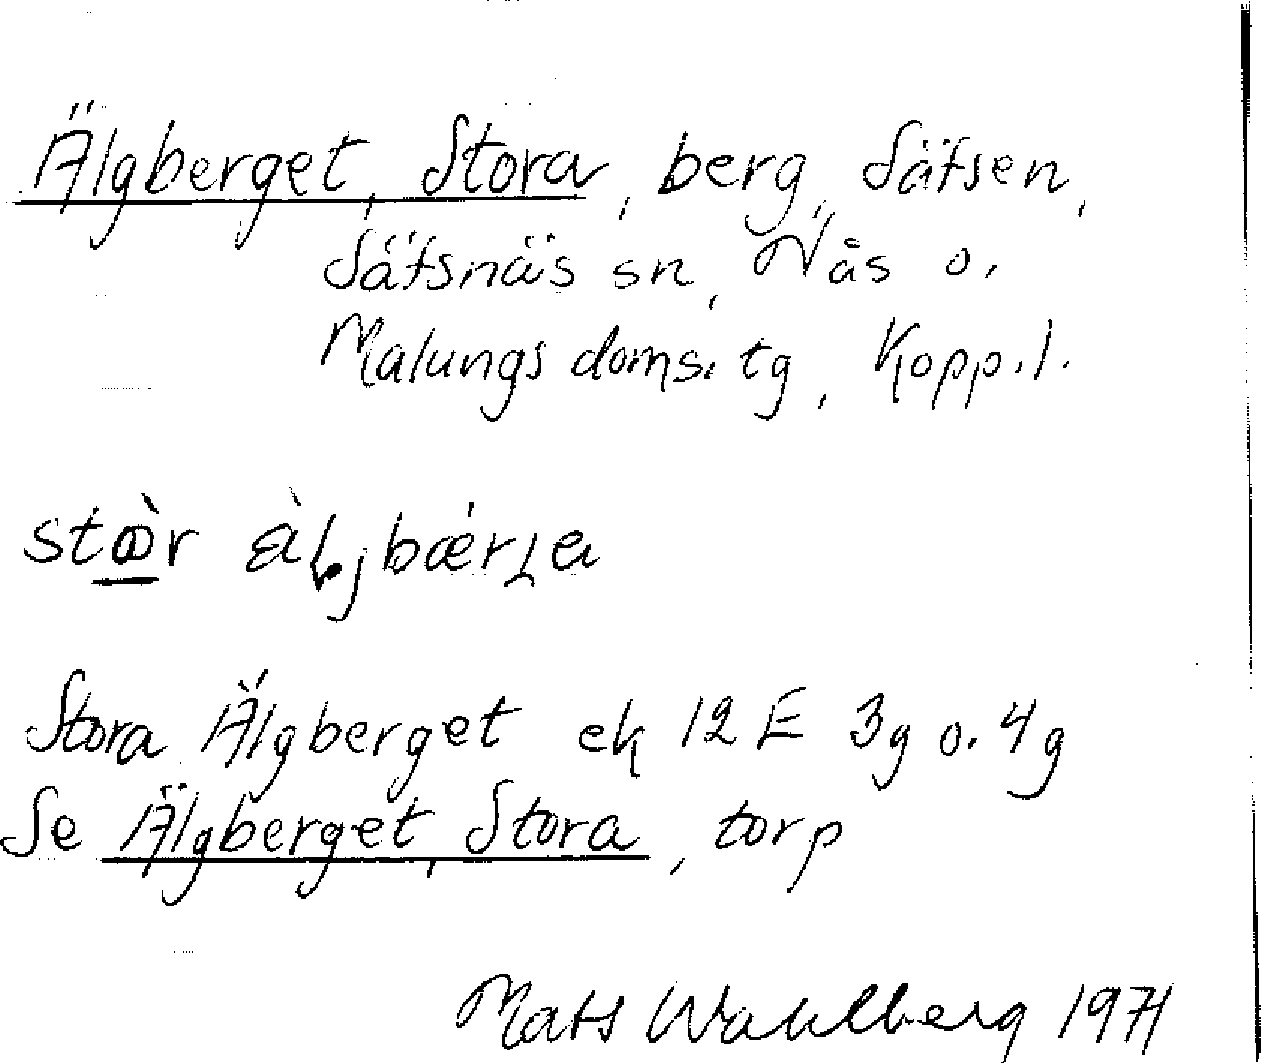 Älgberget, Stora, berg, Säfsen,
Säfsnäs sn, Nås o.
Malungs doms. tg, Kopp. l.
Stora Älgberget ek 12 E 3g o. 4g
Se Älgberget, Stora, torp
Mats Wahlberg 1971